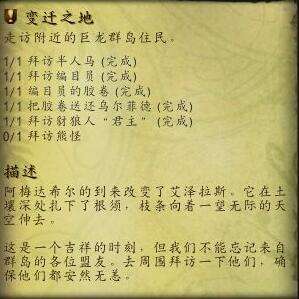 变迁之地
走访附近的巨龙群岛住民。
1/1 拜访半人马 (完成)
1/1 拜访编目员 (完成)
1/1 编目员的胶卷 (完成)
1/1 把胶卷送还乌尔菲德 (完成)
1/1 拜访豺狼人“君主” (完成)
0/1 拜访熊怪
描述
阿梅达希尔的到来改变了艾泽拉斯。它在土
壤深处扎下了根须，枝条向着一望无际的天
空伸去。
这是一个吉祥的时刻，但我们不能忘记来自
群岛的各位盟友。去周围拜访一下他们，确
保他们都安然无恙。